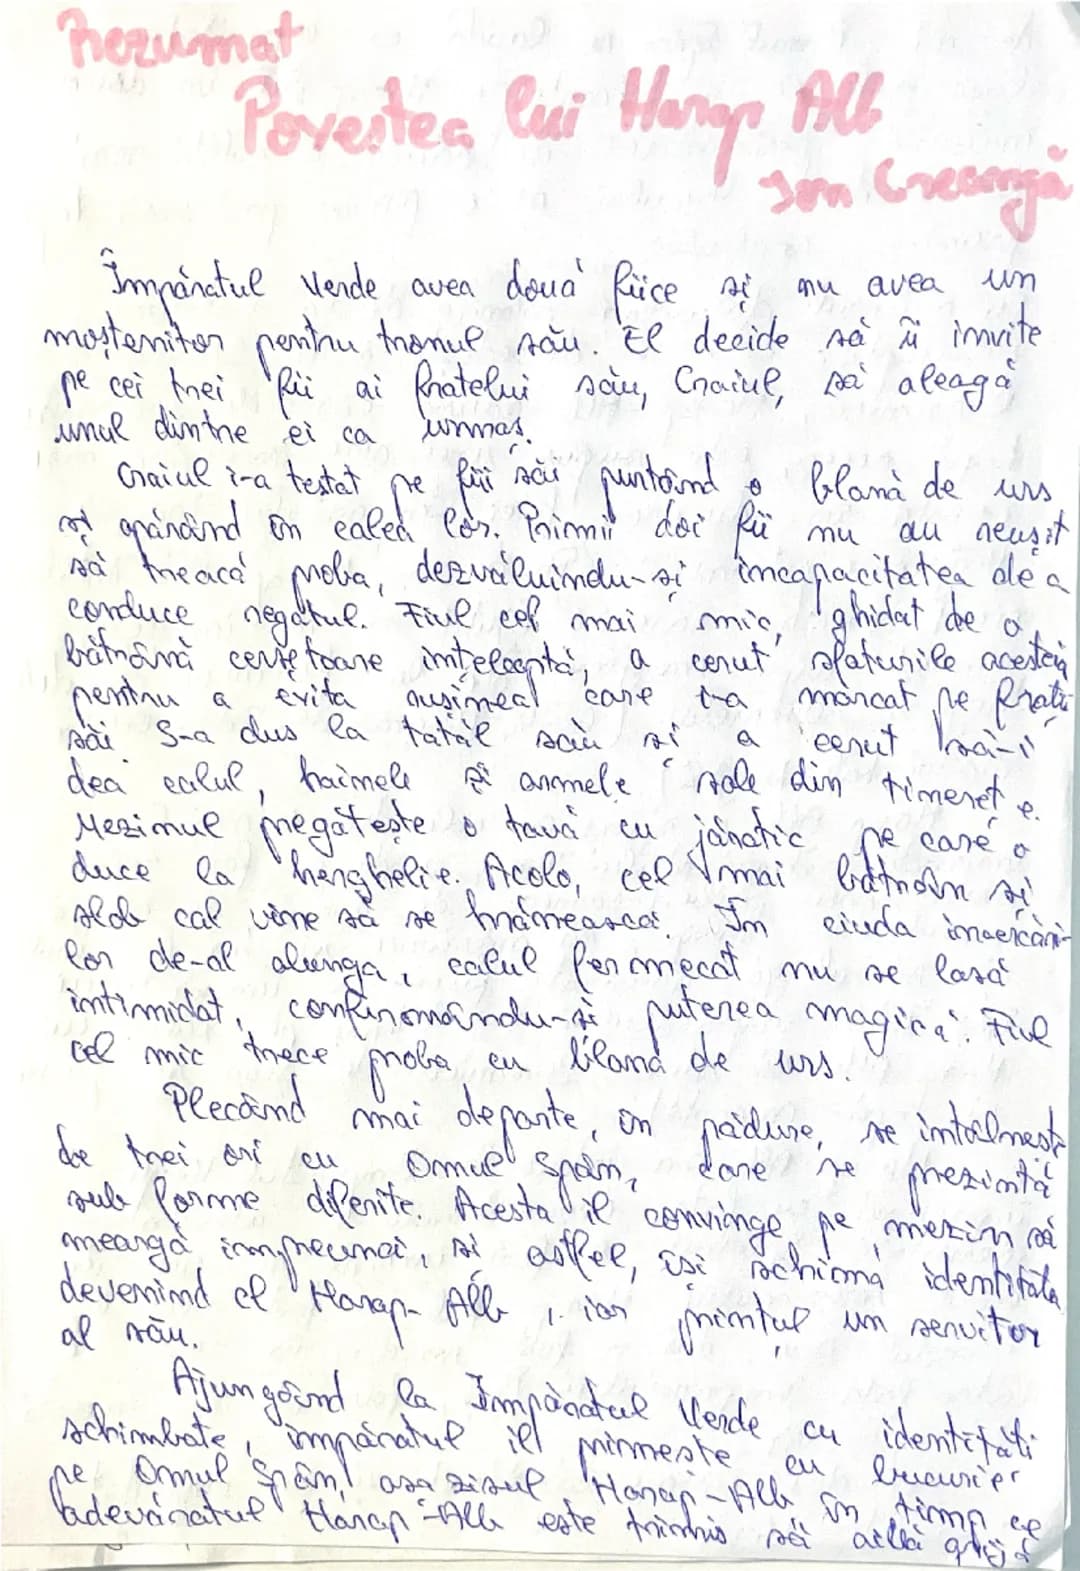 Rezumat
Povestea lui Harap Alb
Ion Creangă
Împăratul Verde avea două fiice și nu avea un
moștenitor pentru tronul său. El decide să îi invite
pe cei trei fii ai fratelui său, Craiul, să aleagă
unul dintre ei ca urmaș.
Craiul i-a testat pe fiii săi purtând o blană de urs
și apărând în calea lor. Primii doi fii nu au reușit
să treacă proba, dezvăluindu-și incapacitatea de a
conduce regatul. Fiul cel mai mic, ghidat de o
bătrână cerșetoare înțeleaptă, a cerut sfaturile acesteia
pentru a evita rușinea care i-a marcat pe frații
săi S-a dus la tatăl său și a cerut să-i
dea calul, hainele și armele sale din tinerețe.
Mezinul pregătește o tavă cu jăratic pe care o
duce la herghelie. Acolo, cel mai bătrân și
slab cal vine să se hrănească. În ciuda încercări-
lor de-al alunga, calul fermecat nu se lasă
intimidat, confirmându-și puterea magică. Fiul
cel mic trece proba cu blana de urs.
Plecând mai departe, în pădure, se întâlnește
de trei ori cu Omul Spân, care se prezintă
sub forme diferite. Acesta îl convinge pe mezin să
meargă împreună, și astfel, își schimă identitata
devenind el Harap-Alb, iar prințul un servitor
al său.
Ajungând la Împăratul Verde cu identități
schimbate, împăratul îl primește cu bucurie
pe Omul Spân, așa zisul Harap-Alb în timp ce
adevăratul Harap-Alb este trimis să aibă grijă